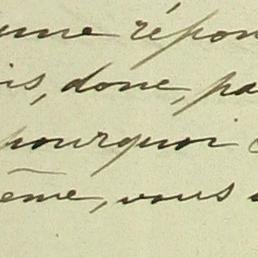 une répon
is, donc, pa
pourquoi
ême, vous